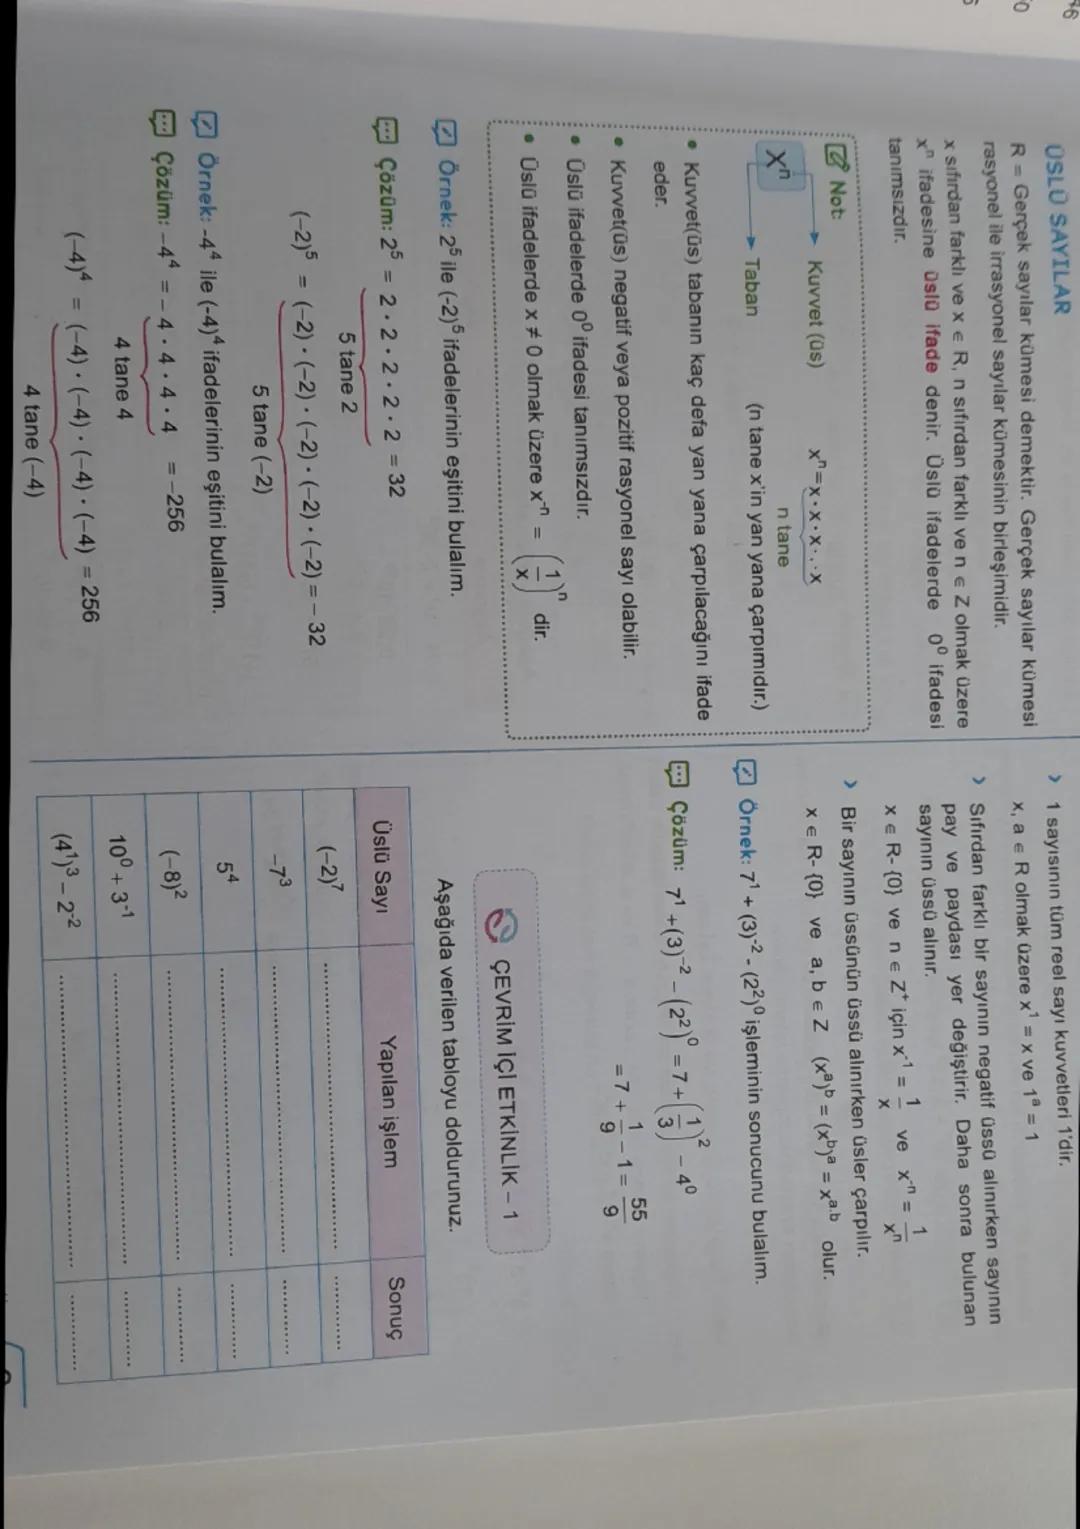 ÜSLÜ SAYILAR
R = Gerçek sayılar kümesi demektir. Gerçek sayılar kümesi
rasyonel ile irrasyonel sayılar kümesinin birleşimidir.
x sıfırdan farklı ve x ∈ R, n sıfırdan farklı ve n ∈ Z olmak üzere
xⁿ ifadesine üslü ifade denir. Üslü ifadelerde 0⁰ ifadesi
tanımsızdır.
Not:
Kuvvet (üs) xⁿ=x·x·x···x
n tane
xⁿ
Taban (n tane x'in yan yana çarpımıdır.)
• Kuvvet(üs) tabanın kaç defa yan yana çarpılacağını ifade
eder.
• Kuvvet(üs) negatif veya pozitif rasyonel sayı olabilir.
• Üslü ifadelerde 0⁰ ifadesi tanımsızdır.
• Üslü ifadelerde x ≠ 0 olmak üzere x⁻ⁿ = (1/x)ⁿ dir.
Örnek: 2⁵ ile (-2)⁵ ifadelerinin eşitini bulalım.
Çözüm: 2⁵ = 2 · 2 · 2 · 2 · 2 = 32
5 tane 2
(−2)⁵ = (−2) · (−2) · (−2) · (−2) · (−2) = − 32
5 tane (−2)
Örnek: -4⁴ ile (-4)⁴ ifadelerinin eşitini bulalım.
Çözüm: −4⁴ = − 4 · 4 · 4 · 4 = −256
4 tane 4
(−4)⁴ = (−4) · (−4) · (−4) · (−4) = 256
4 tane (−4)
› 1 sayısının tüm reel sayı kuvvetleri 1'dir.
x, a ∈ R olmak üzere x¹ = x ve 1ᵃ = 1
› Sıfırdan farklı bir sayının negatif üssü alınırken sayının
pay ve paydası yer değiştirir. Daha sonra bulunan
sayının üssü alınır.
x ∈ R- {0} ve n ∈ Z⁺ için x⁻¹ = 1/x ve x⁻ⁿ = 1/xⁿ
› Bir sayının üssünün üssü alınırken üsler çarpılır.
x ∈ R- {0} ve a, b ∈ Z (xᵃ)ᵇ = (xᵇ)ᵃ = xᵃ·ᵇ olur.
Örnek: 7¹ + (3)⁻² - (2²)⁰ işleminin sonucunu bulalım.
Çözüm: 7¹ +(3)⁻² − (2²)⁰ = 7 + (1/3)² − 4⁰
= 7 + 1/9 − 1 = 55/9
ÇEVRİM İÇİ ETKİNLİK – 1
Aşağıda verilen tabloyu doldurunuz.
Üslü Sayı Yapılan işlem Sonuç
(−2)⁷
−7³
5⁴
(−8)²
10⁰ + 3⁻¹
(4¹)³ − 2⁻²